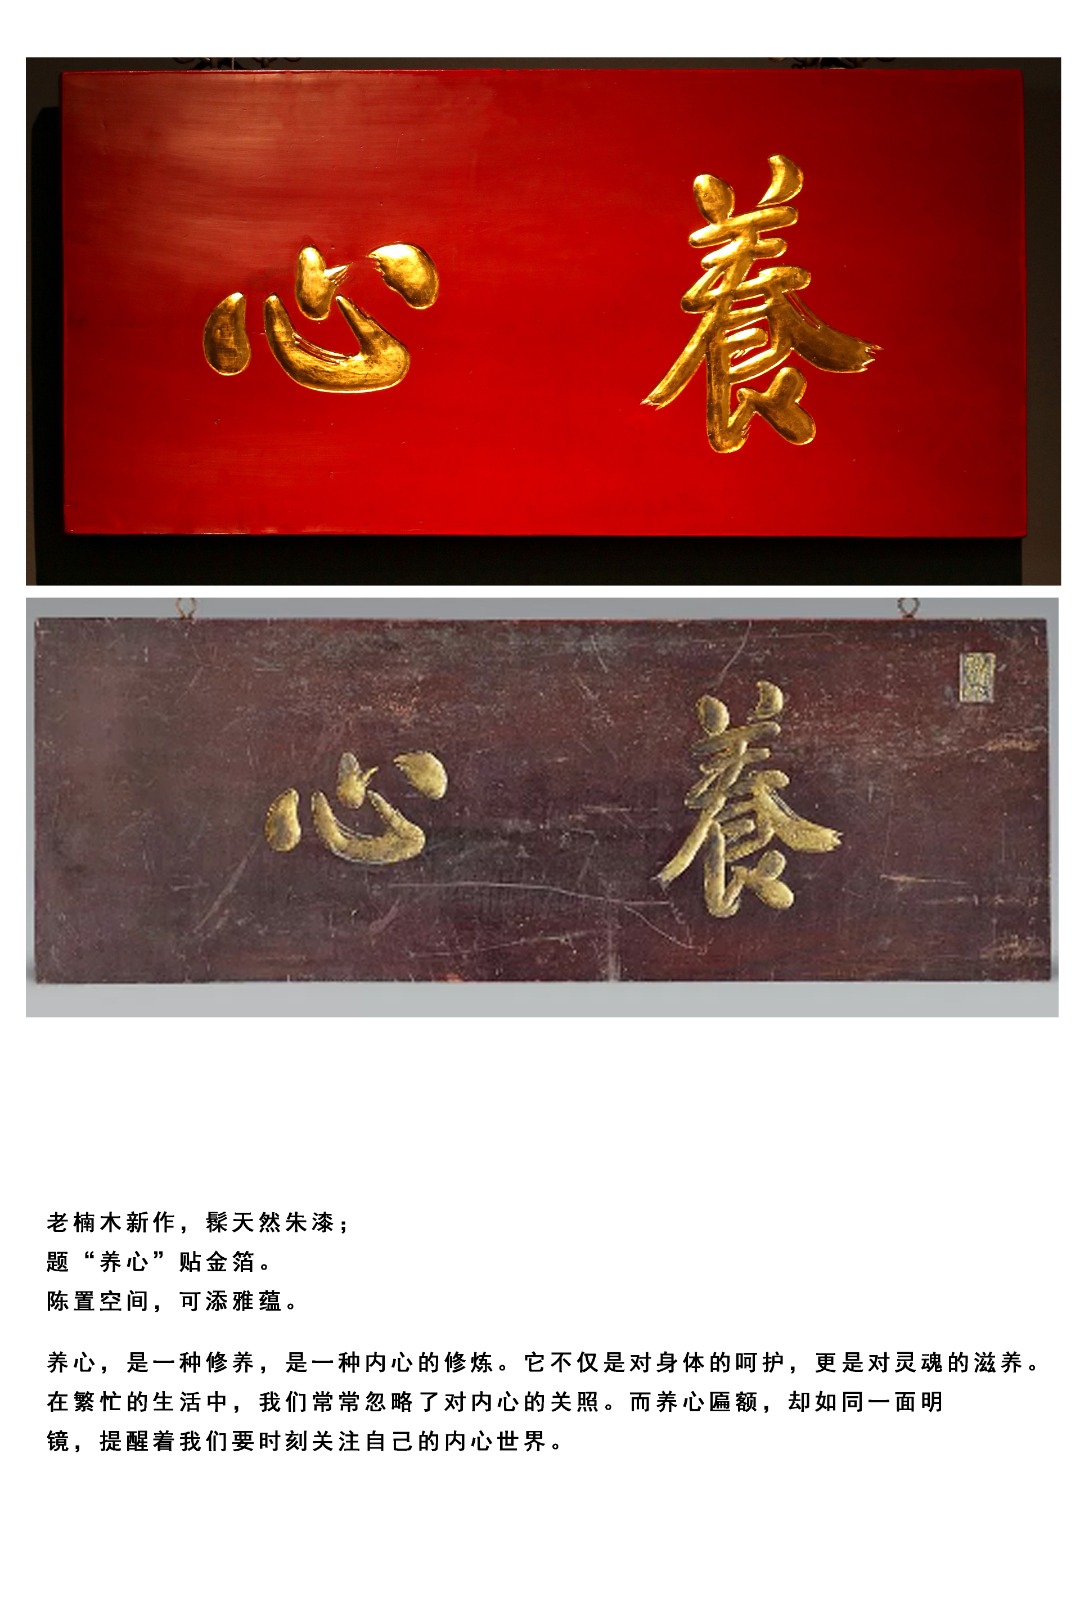 養心
養心
老楠木新作，髹天然朱漆；
题“养心”贴金箔。
陈置空间，可添雅蕴。
养心，是一种修养，是一种内心的修炼。它不仅是对身体的呵护，更是对灵魂的滋养。
在繁忙的生活中，我们常常忽略了对内心的关照。而养心匾额，却如同一面明
镜，提醒着我们要时刻关注自己的内心世界。